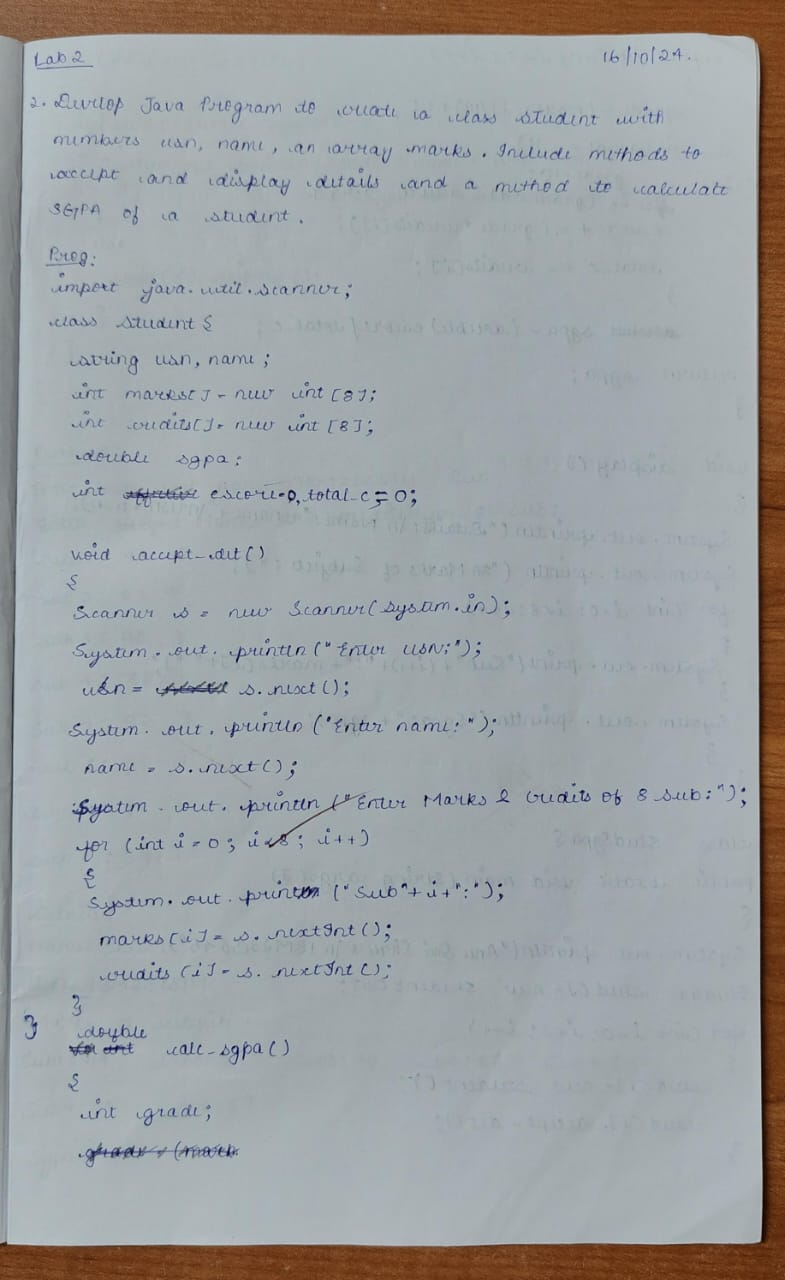 Lab 2
16/10/24.
2. Develop Java Program to create a class student with
members usn, name, an array marks. Include methods to
accept and display details and a method to calculate
SGPA of a student.
Prog:
import java.util.Scanner;
class Student {
string usn, name;
int marks[] = new int [8];
int credits[] = new int [8];
double sgpa;
int escore=0, total_c = 0;
void accept_det()
{
Scanner s = new Scanner(System.in);
System.out.println("Enter USN:");
usn = s.next();
System.out.println("Enter name:");
name = s.next();
System.out.println("Enter Marks & Credits of 8 Sub:");
for (int i = 0; i<8; i++)
{
System.out.println ("Sub"+i+":");
marks[i] = s.nextInt();
credits[i] = s.nextInt();
}
}
double
calc_sgpa()
{
int grade;